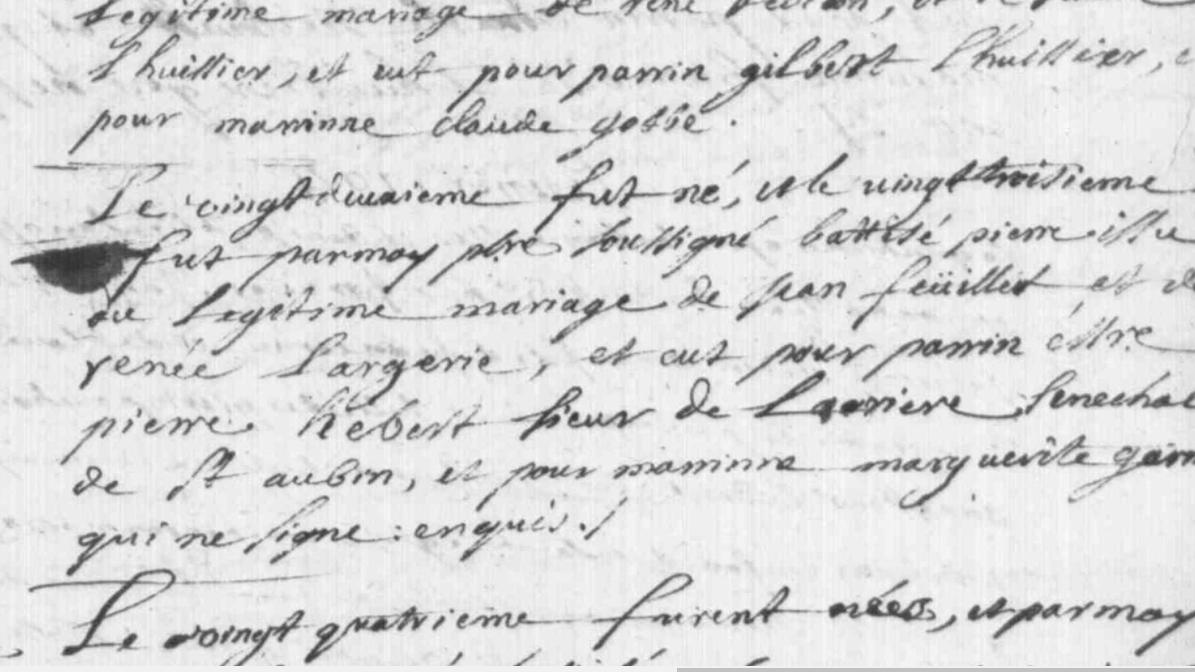 Legitime mariage de rené
L'huillier, et eut pour parrin gilbert L'huillier,
pour marrinne claude gosse.
Le vingt duxaieme fut né, et le vingt troisieme
fut par moy pbre soussigné battisé pierre issu
du Legitime mariage de jean feüillet et de
renée Largerie, et eut pour parrin
pierre hébert sieur de senechal
de St aubin, et pour marrinne marguerite
qui ne signe : enquis ./
Le vingt quatrieme furent nées, et par moy